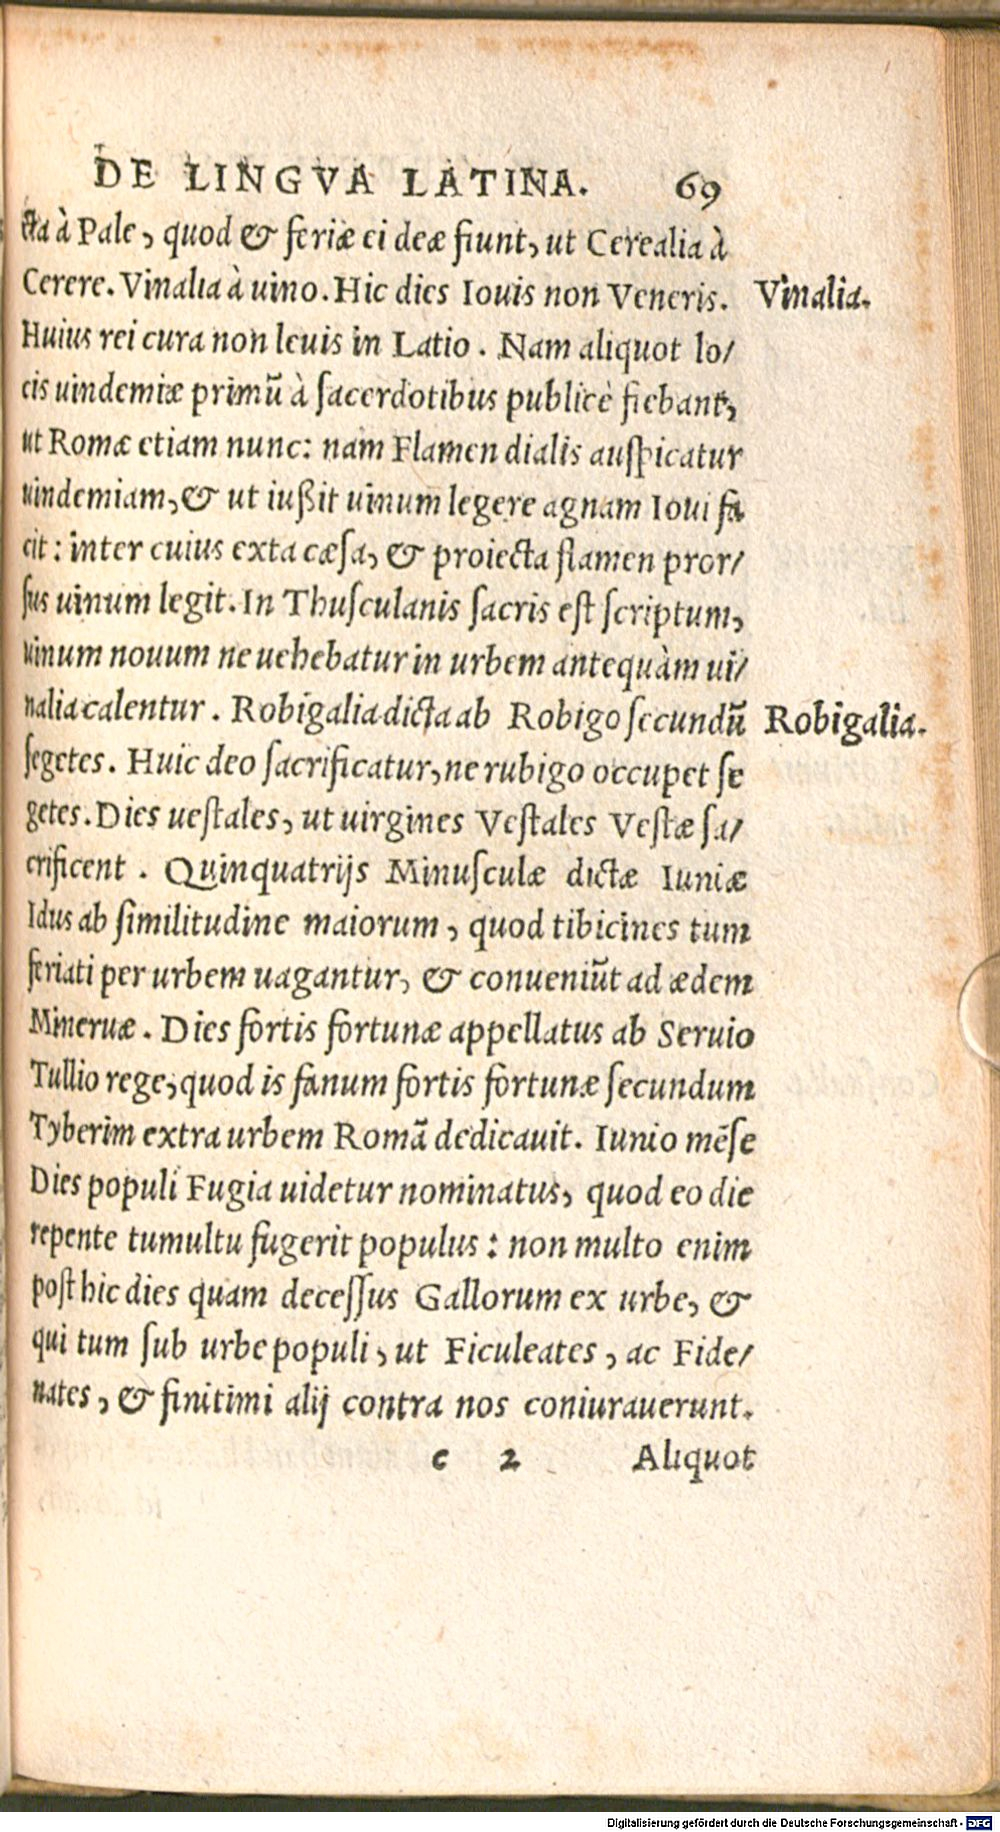 DE LINGVA LATINA. 69
cta à Pale, quod & feriæ ei deæ fiunt, ut Cerealia à
Cerere. Vinalia à uino. Hic dies Iouis non Veneris. Vinalia.
Huius rei cura non leuis in Latio. Nam aliquot lo/
cis uindemiæ primū à sacerdotibus publicè fiebant,
ut Romæ etiam nunc: nam Flamen dialis auspicatur
uindemiam, & ut iußit uinum legere agnam Ioui fa
cit: inter cuius exta cæsa, & proiecta flamen pror/
sus uinum legit. In Thusculanis sacris est scriptum,
uinum nouum ne uehebatur in urbem antequàm ui/
nalia calentur. Robigalia dicta ab Robigo secundū Robigalia.
segetes. Huic deo sacrificatur, ne rubigo occupet se
getes. Dies uestales, ut uirgines Vestales Vestæ sa/
crificent. Quinquatrijs Minusculæ dictæ Iuniæ
Idus ab similitudine maiorum, quod tibicines tum
feriati per urbem uagantur, & conueniūt ad ædem
Mineruæ. Dies fortis fortunæ appellatus ab Seruio
Tullio rege, quod is fanum fortis fortunæ secundum
Tyberim extra urbem Romā dedicauit. Iunio mēse
Dies populi Fugia uidetur nominatus, quod eo die
repente tumultu fugerit populus: non multo enim
post hic dies quam decessus Gallorum ex urbe, &
qui tum sub urbe populi, ut Ficuleates, ac Fide/
nates, & finitimi alij contra nos coniurauerunt.
c 2 Aliquot
Digitalisierung gefördert durch die Deutsche Forschungsgemeinschaft - DFG